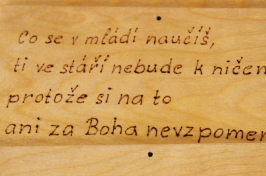 Co se v mládí naučíš,
ti ve stáří nebude k ničem
protože si na to
ani za Boha nevzpomen